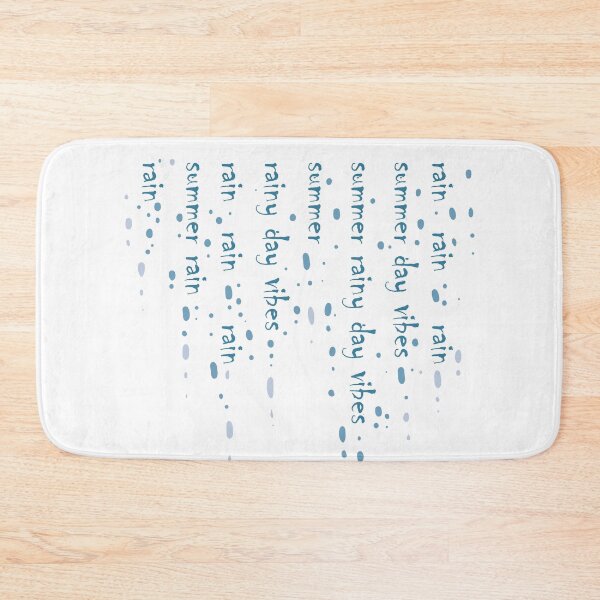 rain · rain · rain
summer day vibes
summer rainy day vibes
summer
rainy day vibes
rain · rain · rain
summer rain
rain